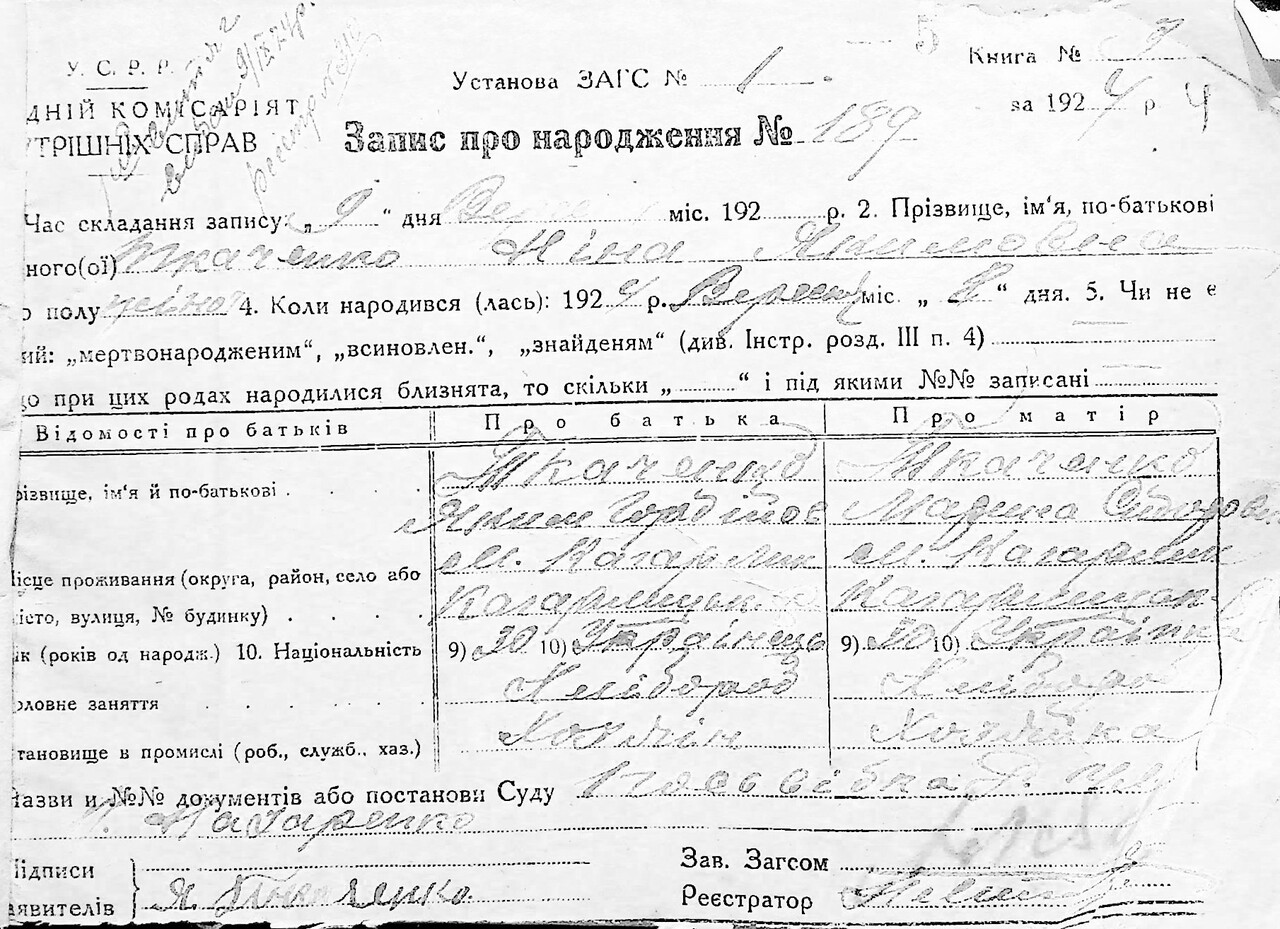 У. С. Р. Р.
ДНІЙ КОМІСАРІЯТ
ТРІШНІХ СПРАВ
9/IX 24 р.
5
Установа ЗАГС № 1
Книга № 3
за 1924 р. 4
Запис про народження № 189
Час складання запису: „9“ дня міс. 192 р. 2. Прізвище, ім‘я, по-батькові
ного(ої) Ткаченко Ніна Якимовна
полу жіноч 4. Коли народився (лась): 1924 р. Вересня міс. „8“ дня. 5. Чи не є
ий: „мертвонародженим“, „всиновлен.“, „знайденям“ (див. Інстр. розд. III п. 4)
що при цих родах народилися близнята, то скільки „ “ і під якими №№ записані
Відомості про батьків Про батька Про матір
різвище, ім‘я й по-батькові Ткаченко Ткаченко
Яким Гордійов Марина Сидоров
м. Кагарлик м. Кагарлик
ісце проживання (округа, район, село або
істо, вулиця, № будинку) Кагарлицьк Кагарлицьк
ік (років од народж.) 10. Національність 9) 30 10) Українець 9) 30 10) Українка
оловне заняття Хлібороб Хлібороб
тановище в промислі (роб., служб., хаз.) Хазяїн Хазяйка
Назви и №№ документів або постанови Суду
Назаренко
Підписи
аявителів Я. Ткаченко
Зав. Загсом
Реєстратор